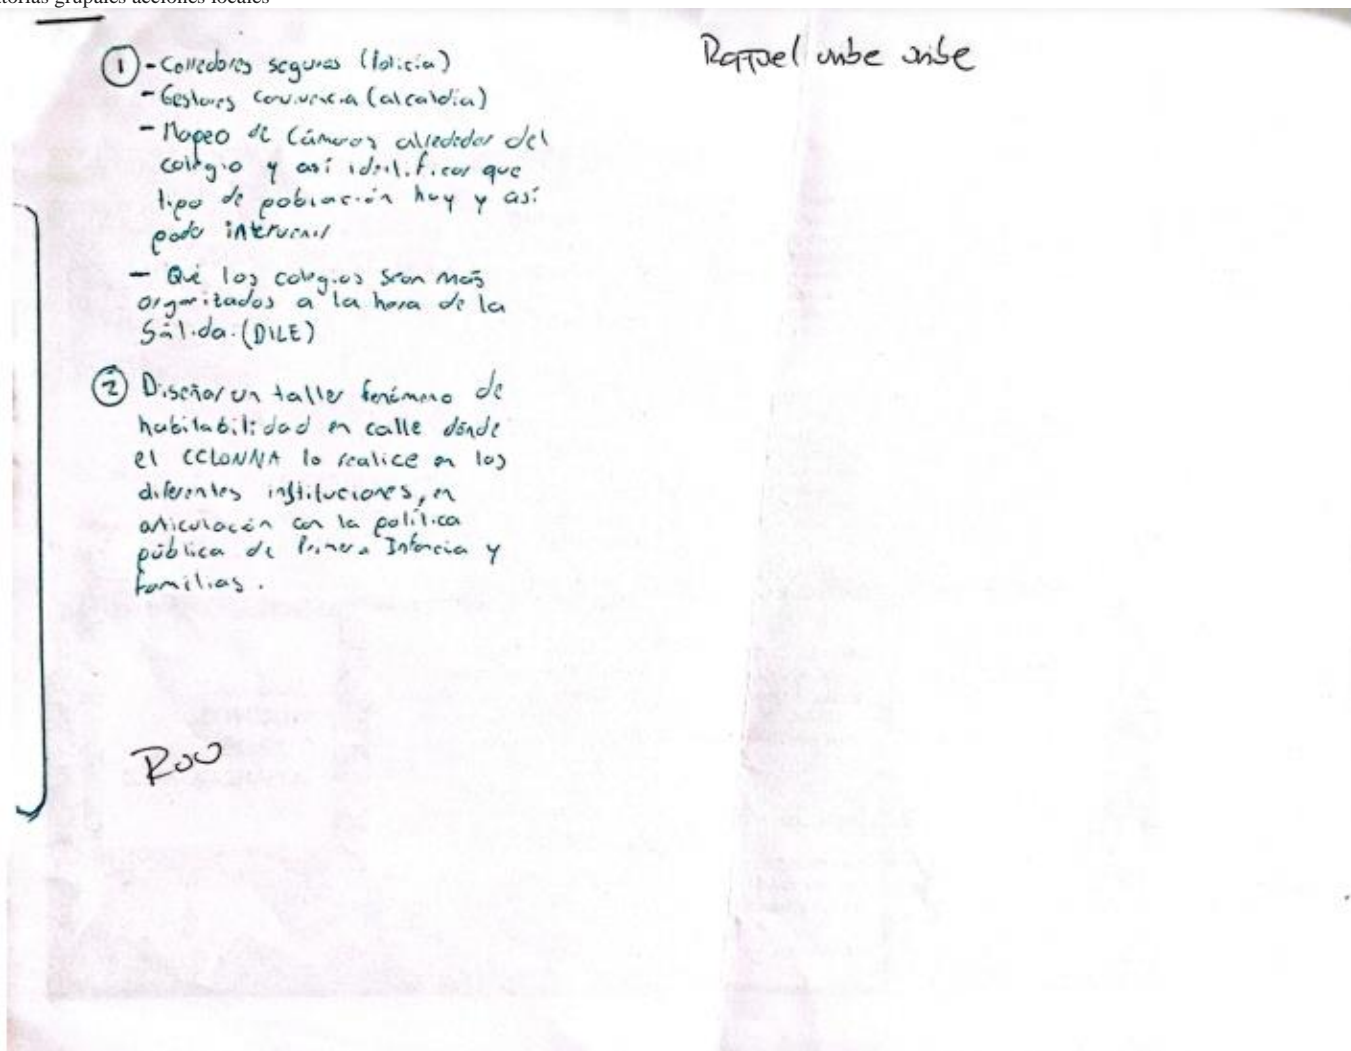 torias grupales acciones locales
Rafael uribe uribe
① - Corredores seguros (Policía)
- Gestores convivencia (alcaldía)
- Mapeo de Cámaras alrededor del
colegio y así identificar que
tipo de población hay y así
poder intervenir
- Qué los colegios sean más
organizados a la hora de la
Sálida. (DILE)
② Diseñar un taller fenómeno de
habitabilidad en calle dónde
el CCLONNA lo realice en los
diferentes instituciones, en
articulación con la política
pública de Primera Infancia y
familias.
RUU